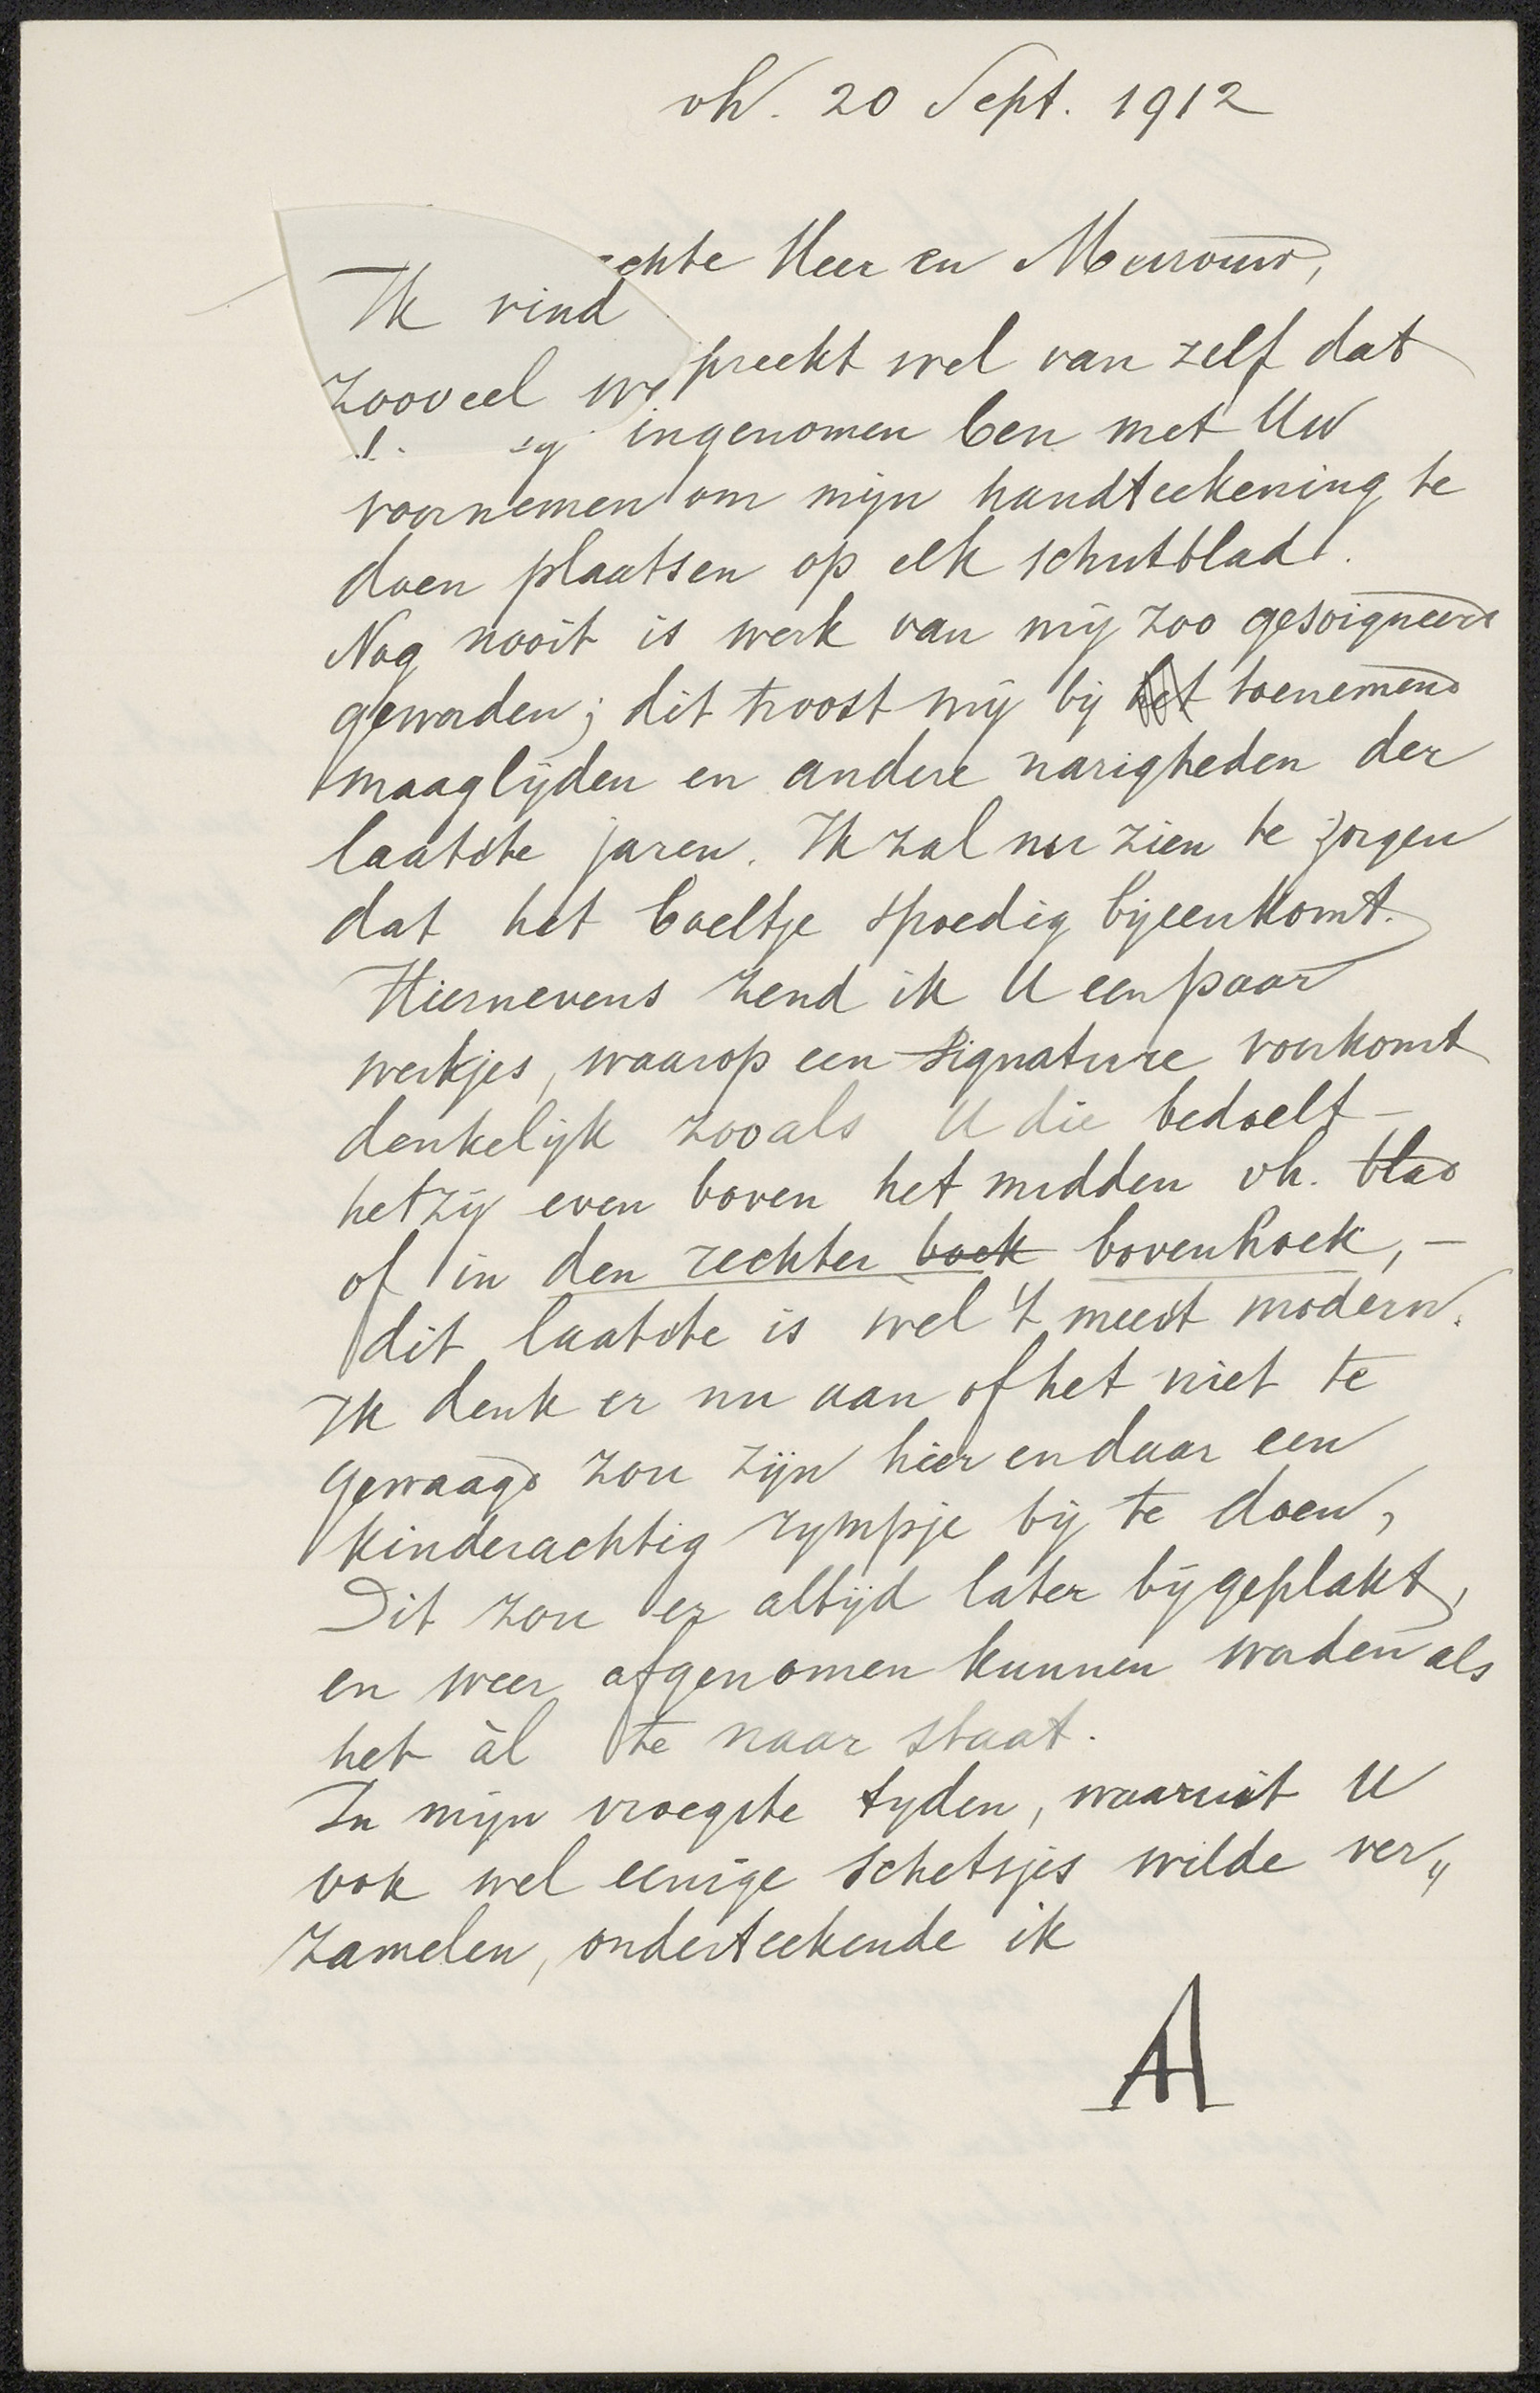 vh. 20 Sept. 1912
echte Heer en Mevrouw,
Ik vind
preekt wel van zelf dat
zooveel we
ingenomen ben met Uw
voornemen om mijn handteekening te
doen plaatsen op elk schutblad.
Nog nooit is werk van mij zoo gesoigneerd
geworden; dit troost mij bij het toenemend
maaglijden en andere narigheden der
laatste jaren. Ik zal nu zien te zorgen
dat het boeltje spoedig bijeenkomt.
Hiernevens zend ik U een paar
werkjes, waarop een signature voorkomt
denkelijk zooals U die bedoelt –
hetzij even boven het midden vh. blad
of in den rechter boek bovenhoek, –
dit laatste is wel 't meest modern.
Ik denk er nu aan of het niet te
gewaagd zou zijn hier en daar een
kinderachtig rympje bij te doen,
Dit zou er altijd later bijgeplakt,
en weer afgenomen kunnen worden als
het àl te naar staat.
In mijn vroegste tyden, waaruit U
ook wel eenige schetsjes wilde ver„
zamelen, onderteekende ik
AH